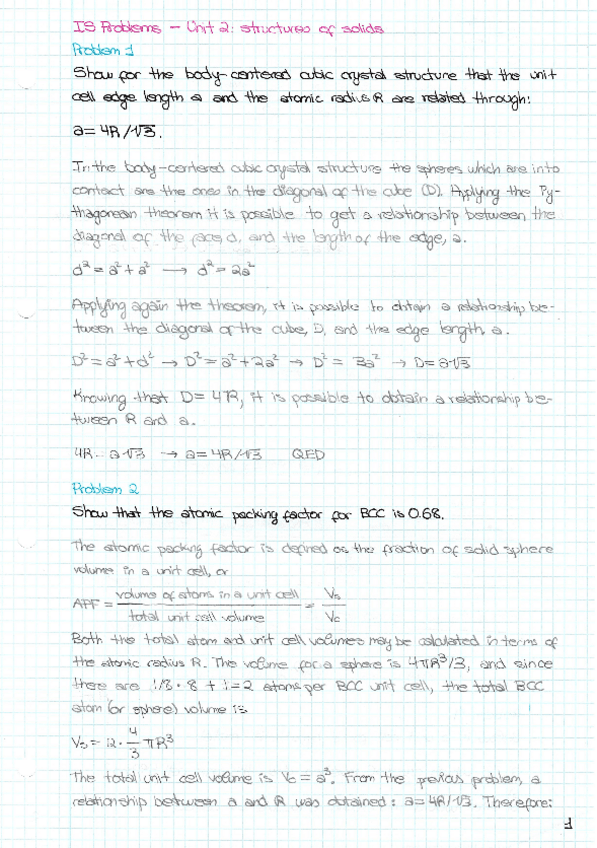 IS Problems - Unit 2: structures of solids
Problem 1
Show for the body-centered cubic crystal structure that the unit
cell edge length a and the atomic radius R are related through:
a = 4R/√3.
In the body-centered cubic crystal structure the spheres which are into
contact are the ones in the diagonal of the cube (D). Applying the Py-
thagorean theorem it is possible to get a relationship between the
diagonal of the face, d, and the length of the edge, a.
d² = a² + a² → d² = 2a²
Applying again the theorem, it is possible to obtain a relationship be-
tween the diagonal of the cube, D, and the edge length, a.
D² = a² + d² → D² = a² + 2a² → D² = 3a² → D = a√3
Knowing that D = 4R, it is possible to obtain a relationship be-
tween R and a.
4R = a√3 → a = 4R/√3 QED
Problem 2
Show that the atomic packing factor for BCC is 0.68.
The atomic packing factor is defined as the fraction of solid sphere
volume in a unit cell, or
APF = volume of atoms in a unit cell / total unit cell volume = Vs / Vc
Both the total atom and unit cell volumes may be calculated in terms of
the atomic radius R. The volume for a sphere is 4πR³/3, and since
there are 1/8 · 8 + 1 = 2 atoms per BCC unit cell, the total BCC
atom (or sphere) volume is
Vs = 2 · 4/3 πR³
The total unit cell volume is Vc = a³. From the previous problem, a
relationship between a and R was obtained: a = 4R/√3. Therefore:
1